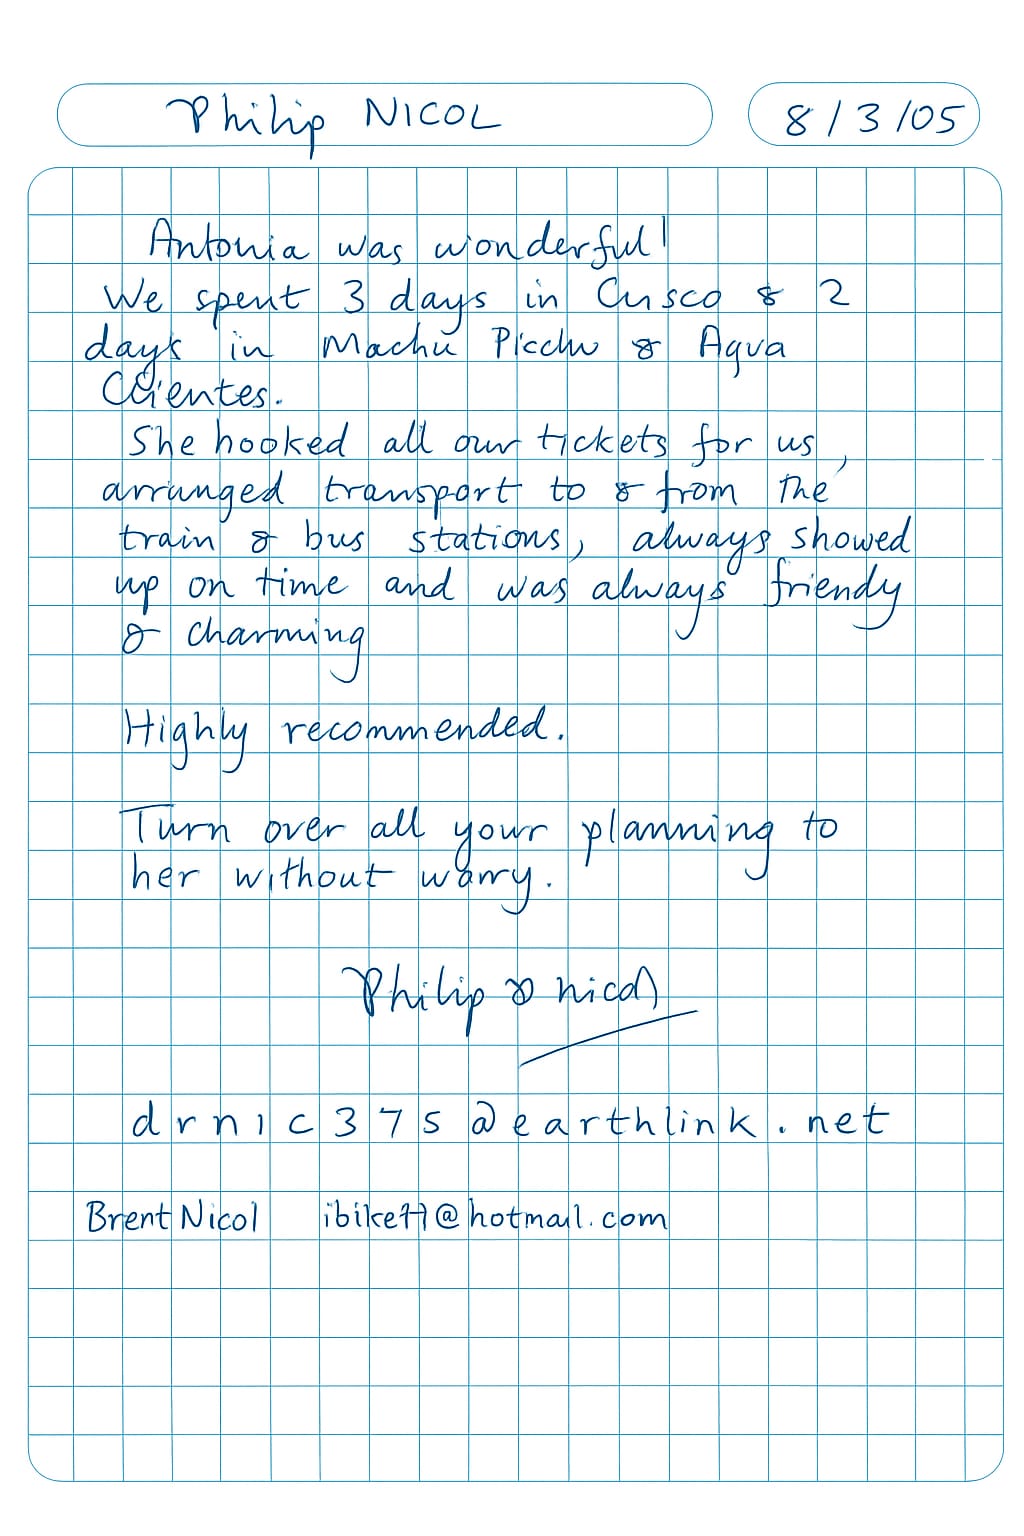 Philip NICOL 8/3/05
Antonia was wonderful!
We spent 3 days in Cusco & 2
days in Machu Picchu & Aqua
Clientes.
She hooked all our tickets for us,
arranged transport to & from the
train & bus stations, always showed
up on time and was always friendy
& charming
Highly recommended.
Turn over all your planning to
her without worry.
Philip & nicol
drnic375@earthlink.net
Brent Nicol